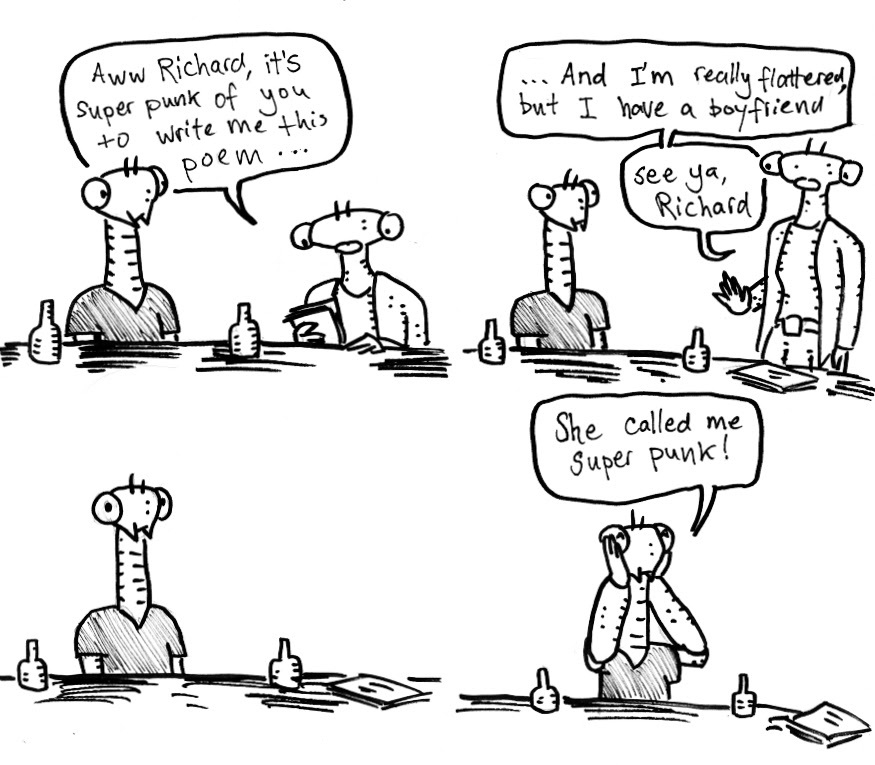 Aww Richard, it's
super punk of you
to write me this
poem ...
... And I'm really flattered,
but I have a boyfriend
see ya,
Richard
She called me
super punk!